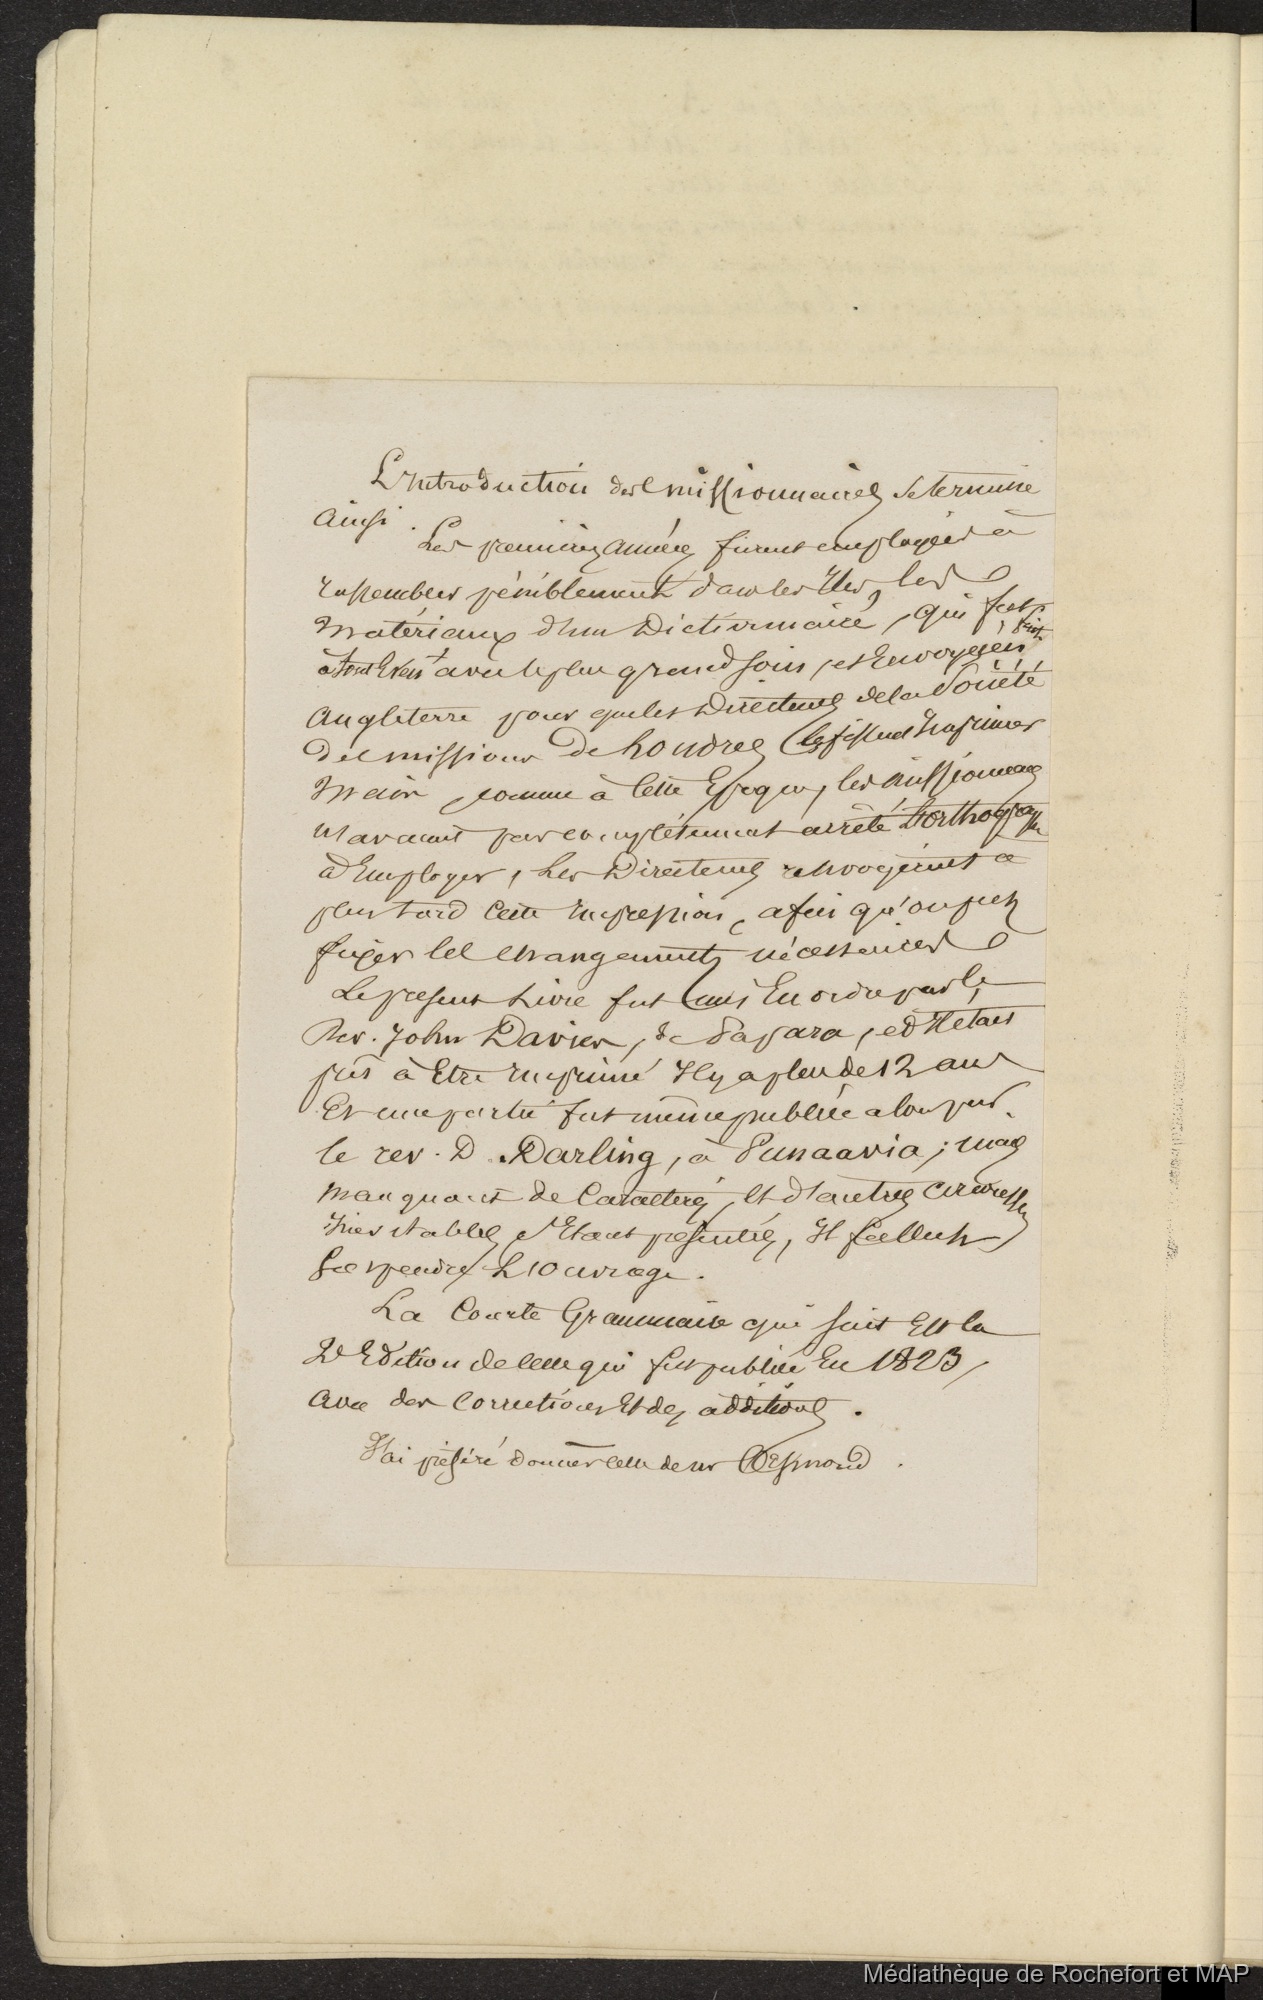 L'Introduction des missionnaires se termine
Ainsi.
Les premières années furent employées à
rassembler péniblement dans les Iles, les
Matériaux d'un Dictionnaire, qui fut
fait
avec le plus grand soin, et Envoyé en
Angleterre pour que les Directeurs de la Société
Des missions De Londres le fissent Imprimer
Mais, comme à Cette Epoque, les missionnaires
n'avaient pas complétement arrêté L'orthographe
à Employer, Les Directeurs renvoyèrent à
plus tard Cette Impression, afin qu'on put
les changements nécessaires
Le présent Livre fut mis En ordre par le
Rev. John Davies, de Papara, et Il etait
prêt à Etre Imprimé Il y a plus de 12 ans
Et une partie fut même publiée alors par
le rev. D. Darling, à Punaavia; mais
manquant de Caractères, Et d'autres circonstances
Inévitables s'Etant présentées, Il fallut
Suspendre L'Ouvrage.
La Courte Grammaire qui suit Est la
2de Edition de celle qui fut publiée En 1823,
Avec des Corrections Et des additions.
J'ai préféré donner celle de Mr Orsmond.